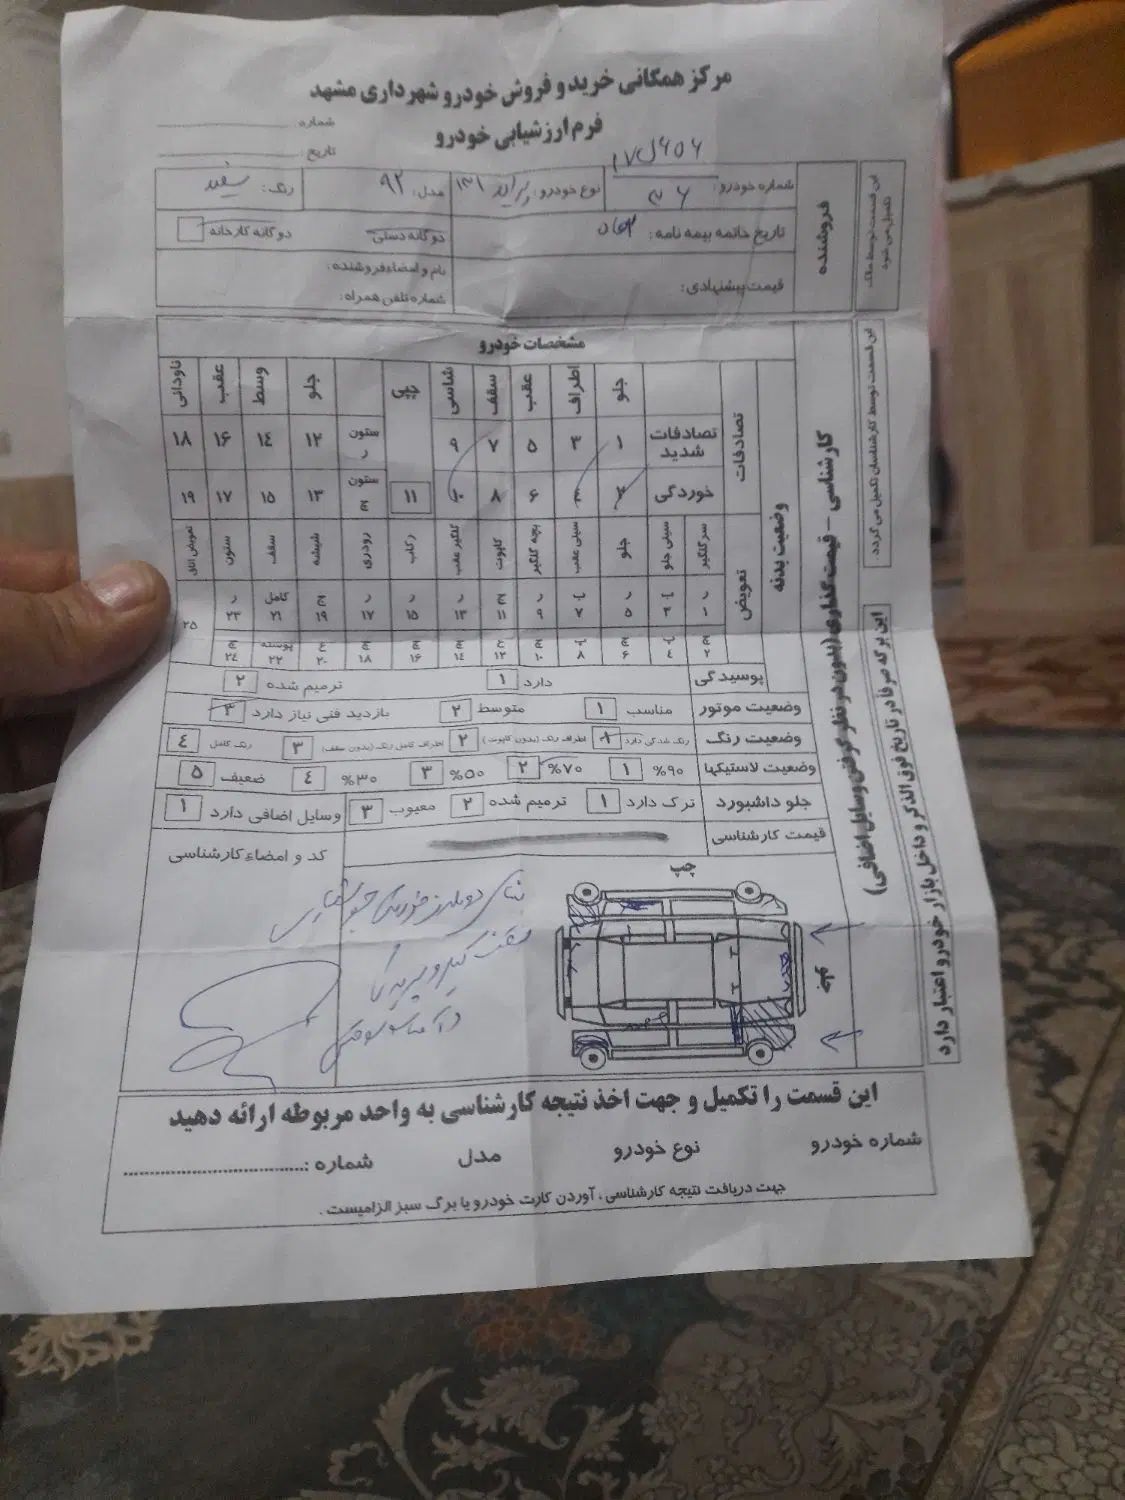 مرکز همگانی خرید و فروش خودرو شهرداری مشهد
فرم ارزشیابی خودرو
شماره :
تاریخ :
این قسمت توسط مالک تکمیل می شود
فروشنده
شماره خودرو : ۳۶ نوع خودرو : پراید ۱۳۱ مدل : ۹۲ رنگ : سفید
تاریخ خاتمه بیمه نامه : دوگانه دستی دوگانه کارخانه
قیمت پیشنهادی : نام و امضاء فروشنده :
شماره تلفن همراه :
این قسمت توسط کارشناسان تکمیل می گردد .
کارشناسی - قیمت گذاری (بدون در نظر گرفتن وسایل اضافی)
این برگه صرفا در تاریخ فوق الذکر و داخل بازار خودرو اعتبار دارد
مشخصات خودرو
وضعیت بدنه
تصادفات جلو اطراف عقب سقف شاسی جلو وسط عقب ناودانی
تصادفات شدید ۱ ۳ ۵ ۷ ۹ ستون ر ۱۲ ۱۴ ۱۶ ۱۸
خوردگی ۲ ۴ ۶ ۸ ۱۰ ۱۱ ستون چ ۱۳ ۱۵ ۱۷ ۱۹
تعویض سر گلگیر سینی جلو جلو سینی عقب بچه گلگیر کاپوت گلگیر عقب رکاب رودری شیشه سقف ستون تعویض اتاق
ر ۱ ۳ ر ۵ ۷ ر ۹ ۱۱ ر ۱۳ ر ۱۵ ر ۱۷ ۱۹ کامل ۲۱ ر ۲۳ ۲۵
چ ۲ ۴ چ ۶ ۸ چ ۱۰ ۱۲ چ ۱۴ چ ۱۶ چ ۱۸ ۲۰ پوسته ۲۲ چ ۲۴
پوسیدگی دارد ۱ ترمیم شده ۲
وضعیت موتور مناسب ۱ متوسط ۲ بازدید فنی نیاز دارد ۳
وضعیت رنگ رنگ شدگی دارد ۱ اطراف رنگ (بدون کاپوت) ۲ اطراف کامل رنگ (بدون سقف) ۳ رنگ کامل ۴
وضعیت لاستیکها ۹۰% ۱ ۷۰% ۲ ۵۰% ۳ ۳۰% ۴ ضعیف ۵
جلو داشبورد ترک دارد ۱ ترمیم شده ۲ معیوب ۳ وسایل اضافی دارد ۱
قیمت کارشناسی
کد و امضاء کارشناسی
چپ
این قسمت را تکمیل و جهت اخذ نتیجه کارشناسی به واحد مربوطه ارائه دهید
شماره خودرو نوع خودرو مدل شماره :
جهت دریافت نتیجه کارشناسی ، آوردن کارت خودرو یا برگ سبز الزامیست .